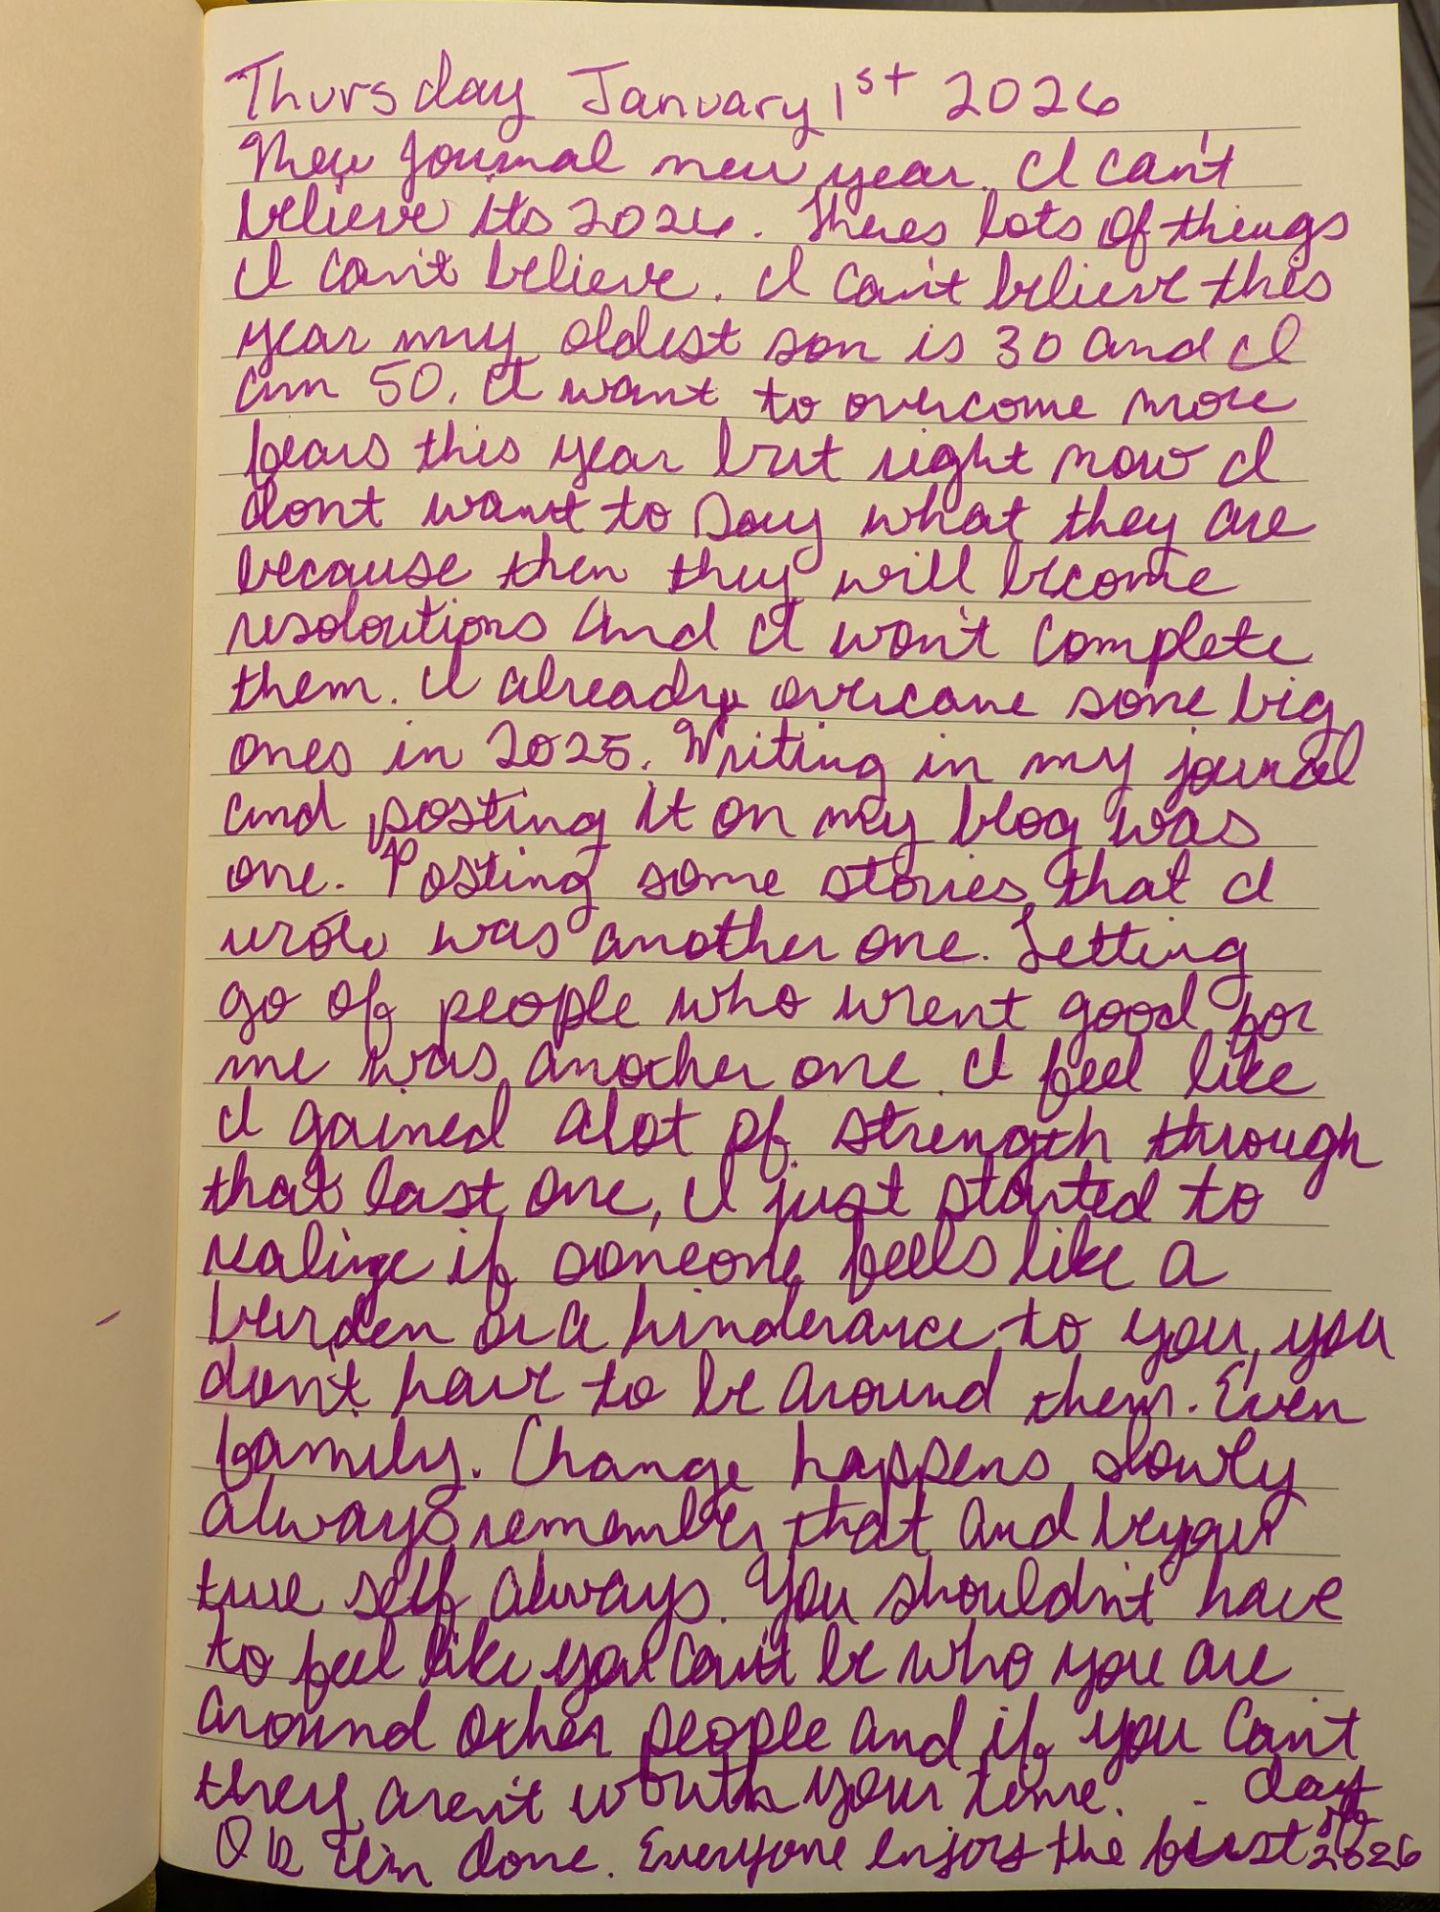 Thursday January 1st 2026
New journal new year. I can't
believe its 2026. Theres lots of things
I can't believe. I can't believe this
year my oldest son is 30 and I
am 50. I want to overcome more
fears this year but right now I
dont want to say what they are
because then they will become
resoloutions and I won't complete
them. I already overcame some big
ones in 2025. Writing in my journal
and posting it on my blog was
one. Posting some stories that I
wrote was another one. Letting
go of people who wrent good for
me was another one. I feel like
I gained alot of strength through
that last one, I just started to
realize if someone feels like a
burden or a hinderance to you, you
don't have to be around them. Even
family. Change happens slowly
always remember that and be your
true self always. You shouldn't have
to feel like you can't be who you are
around other people and if you can't
they aren't worth your time.
Ok I'm done. Everyone enjoy the first day of 2026